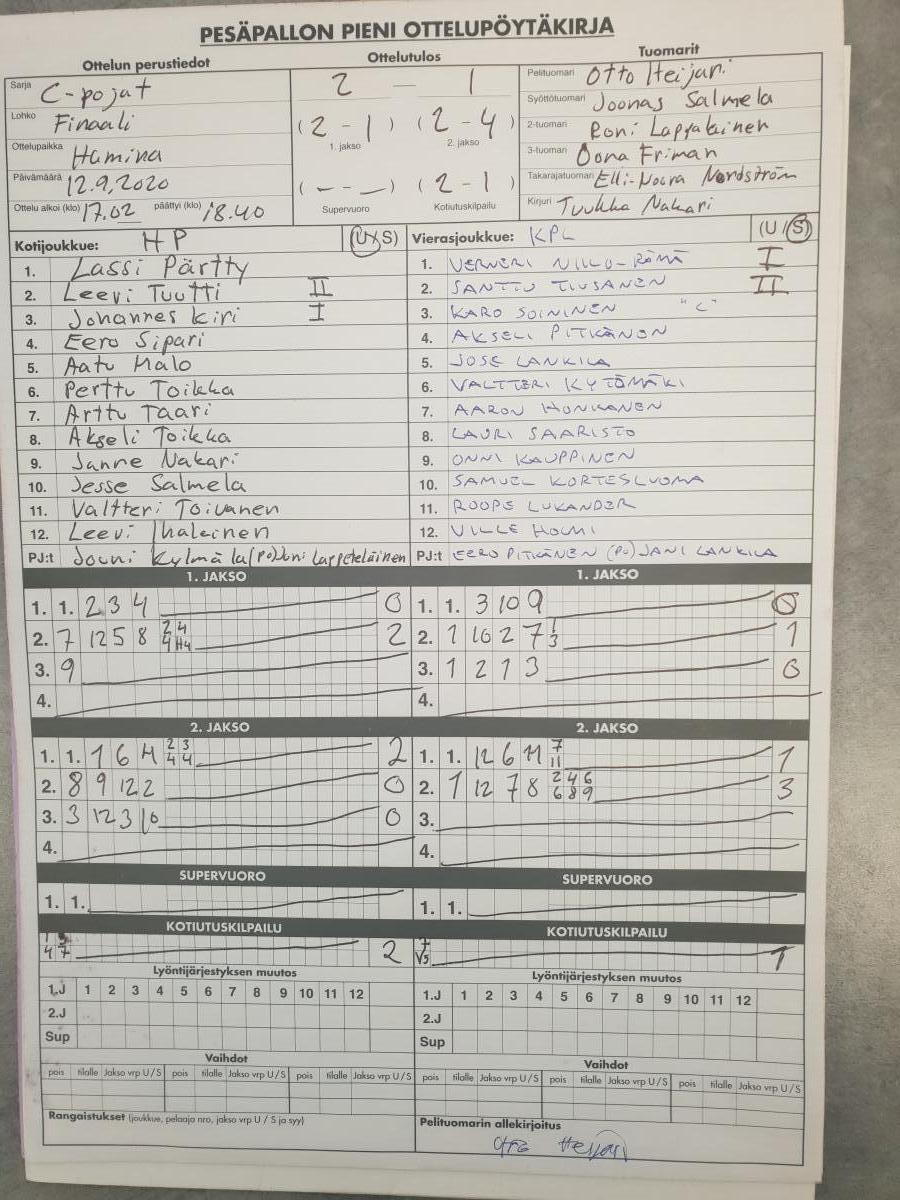 PESÄPALLON PIENI OTTELUPÖYTÄKIRJA
Ottelun perustiedot
Sarja C-pojat
Lohko Finaali
Ottelupaikka Hamina
Päivämäärä 12.9.2020
Ottelu alkoi (klo) 17.02 päättyi (klo) 18.40
Ottelutulos
2 — 1
(2 - 1) (2 - 4)
1. jakso 2. jakso
(- - -) (2 - 1)
Supervuoro Kotiutuskilpailu
Tuomarit
Pelituomari Otto Heijari
Syöttötuomari Joonas Salmela
2-tuomari Roni Lappalainen
3-tuomari Oona Friman
Takarajatuomari Elli-Noora Nordström
Kirjuri Tuukka Nakari
Kotijoukkue: HP (U/S)
1. Lassi Pärtty
2. Leevi Tuutti II
3. Johannes Kiri I
4. Eero Sipari
5. Aatu Malo
6. Perttu Toikka
7. Arttu Taari
8. Akseli Toikka
9. Janne Nakari
10. Jesse Salmela
11. Valtteri Toivanen
12. Leevi Ihalainen
PJ:t Jouni Kylmälä (PO) Joni Lappeteläinen
Vierasjoukkue: KPL (U/S)
1. VERNERI NIILO-RÄMÄ I
2. SANTTU TIUSANEN II
3. KARO SOININEN "C"
4. AKSELI PITKÄNEN
5. JOSE LANKILA
6. VALTTERI KYTÖMÄKI
7. AARON HONKANEN
8. LAURI SAARISTO
9. ONNI KAUPPINEN
10. SAMUEL KORTESLUOMA
11. ROOPE LUKANDER
12. VILLE HOLMI
PJ:t EERO PITKÄNEN (PO) JANI LANKILA
1. JAKSO
1. 1. 2 3 4 0
2. 7 12 5 8 2 4 4 H4 2
3. 9
4.
1. JAKSO
1. 1. 3 10 9 0
2. 1 10 2 7 1 3 1
3. 1 2 1 3 0
4.
2. JAKSO
1. 1. 1 6 H 2 3 4 4 2
2. 8 9 12 2 0
3. 3 12 3 10 0
4.
2. JAKSO
1. 1. 12 6 11 7 11 1
2. 1 12 7 8 2 4 6 6 8 9 3
3.
4.
SUPERVUORO
1. 1.
SUPERVUORO
1. 1.
KOTIUTUSKILPAILU
4 7 2
KOTIUTUSKILPAILU
7 V5 1
Lyöntijärjestyksen muutos
1.J 1 2 3 4 5 6 7 8 9 10 11 12
2.J
Sup
Lyöntijärjestyksen muutos
1.J 1 2 3 4 5 6 7 8 9 10 11 12
2.J
Sup
Vaihdot
pois tilalle Jakso vrp U/S pois tilalle Jakso vrp U/S pois tilalle Jakso vrp U/S
Vaihdot
pois tilalle Jakso vrp U/S pois tilalle Jakso vrp U/S pois tilalle Jakso vrp U/S
Rangaistukset (joukkue, pelaaja nro, jakso vrp U / S ja syy)
Pelituomarin allekirjoitus
Otto Heijari